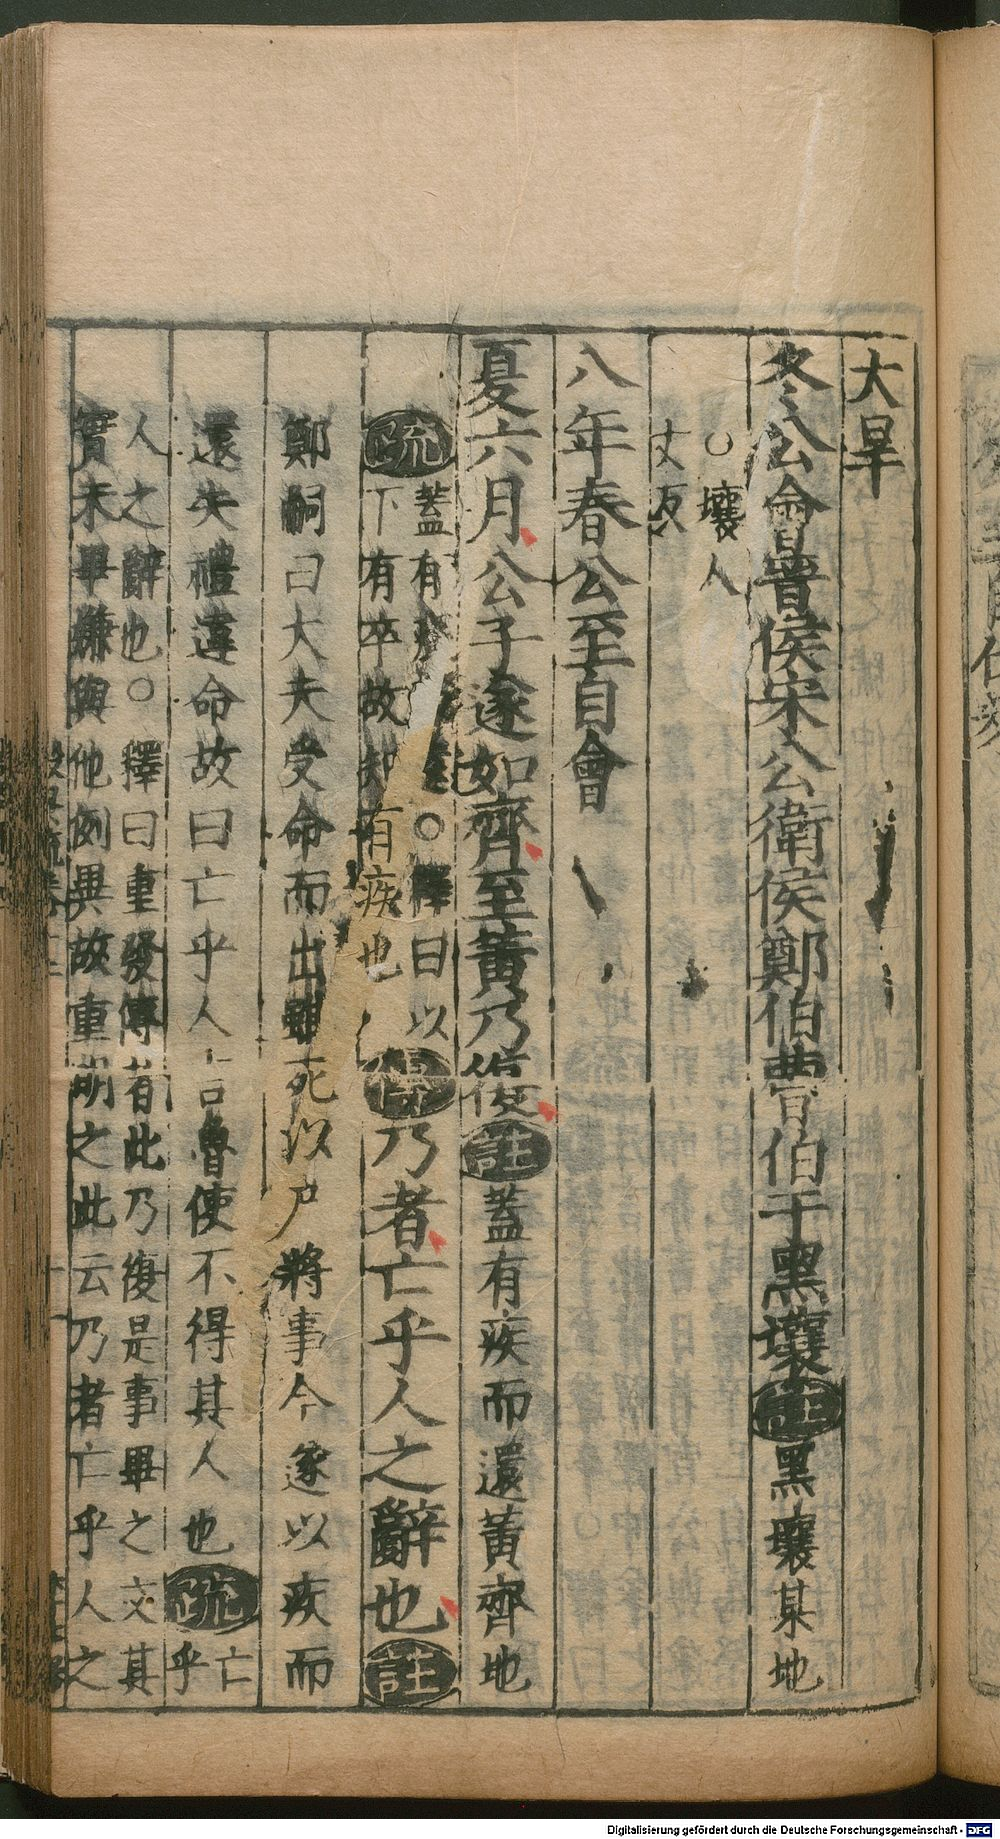 大旱
冬公會晉侯宋公衛侯鄭伯曹伯于黑壤註黑壤某地
○壤人
丈反
八年春公至自會
夏六月公子遂如齊至黃乃復註蓋有疾而還黃齊地
疏蓋有疾 ○釋曰以
下有卒故知有疾也
傳乃者亡乎人之辭也註
鄭嗣曰大夫受命而出雖死以尸將事今遂以疾而
還失禮違命故曰亡乎人言魯使不得其人也疏亡
乎
人之辭也○釋曰重發傳者此乃復是事畢之文其
實未畢嫌與他例異故重明之此云乃者亡乎人之
Digitalisierung gefördert durch die Deutsche Forschungsgemeinschaft - DFG